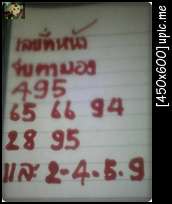 เลขที่หน้า
495
65 66 94
28 95
และ 2-4-5-9
[450x600] upic.me